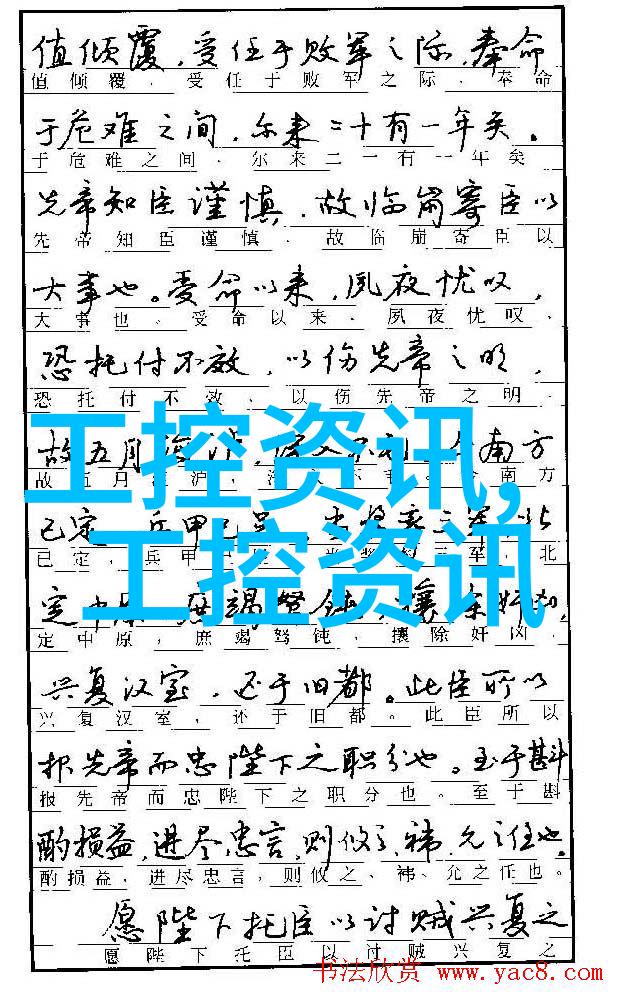 值倾覆，受任于败军之际，奉命
值倾覆，受任于败军之际，奉命
于危难之间，尔来二十有一年矣。
于危难之间，尔来二一有一年矣
先帝知臣谨慎，故临崩寄臣以
先帝知臣谨慎，故临崩寄臣以
大事也。受命以来，夙夜忧叹，
大事也。受命以来，夙夜忧叹，
恐托付不效，以伤先帝之明，
恐托付不效，以伤先帝之明，
故五月渡泸，深入不毛。今南方
故五月 泸，深入不毛。 南方
工控资讯,
已定，兵甲已足，当奖率三军，北
已定，兵甲 三军，北
工控资讯
定中原，庶竭驽钝，攘除奸凶，
定中原，庶竭驽钝，攘除奸凶，
兴复汉室，还于旧都。此臣所以
兴复汉室，还于旧都。此臣所以
报先帝而忠陛下之职分也。至于斟
报先帝而忠陛下之职分也。至于斟
酌损益，进尽忠言，则攸之、祎、允之任也。
酌损益，进尽忠言，则攸之、祎、允之任也。
愿陛下托臣以讨贼兴复之
愿陛下托臣以讨贼兴复之
书法欣赏 www.yac8.com